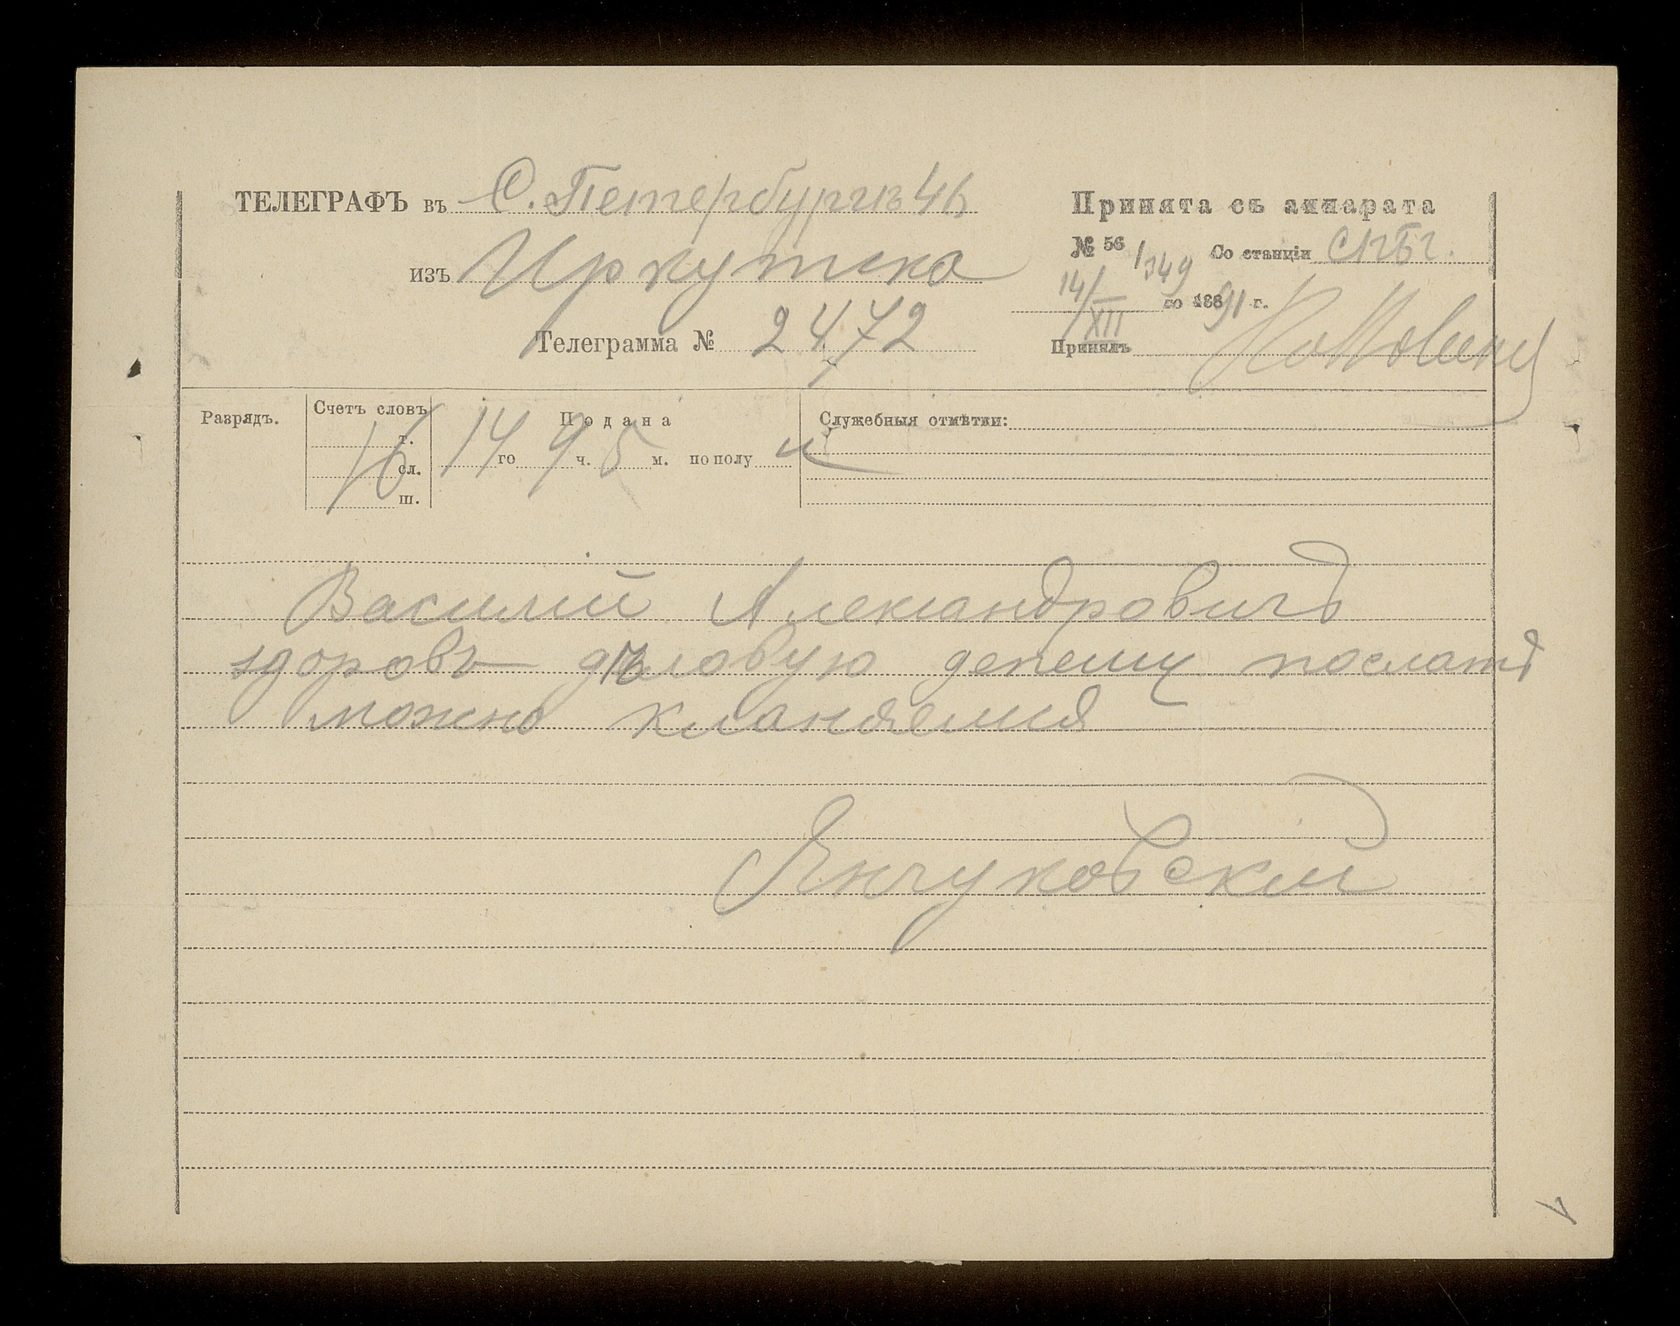 ТЕЛЕГРАФЪ въ С. Петербургъ 46
Принята съ аппарата
№ 56 / 349 Со станціи СПБг.
изъ Иркутска
14/XII го 1891 г.
Телеграмма № 2472
Принялъ
Разрядъ. Счетъ словъ Подана Служебныя отмѣтки:
16 т. сл. ш. 14 го 9 ч. 5 м. по полу
Василій Александровичъ
здоровъ дѣловую депешу послать
можно кланяемся
Янчуковскій